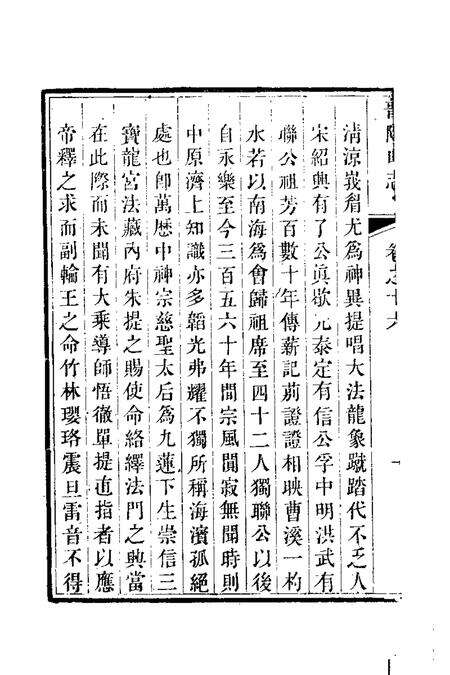 普陀山志
卷之十六
清涼峩眉尤爲神異提唱大法龍象蹴踏代不乏人
宋紹興有了公眞歇元泰定有信公孚中明洪武有
聯公祖芳百數十年傳薪記莂證證相映曹溪一杓
水若以南海爲會歸祖席至四十二人獨聯公以後
自永樂至今三百五六十年間宗風闃寂無聞時則
中原濟上知識亦多韜光弗耀不獨所稱海濱孤絕
處也卽萬歷中神宗慈聖太后爲九蓮下生崇信三
寶龍宮法藏內府朱提之賜使命絡繹法門之興當
在此際而未聞有大乘導師悟徹單提直指者以應
帝釋之求而副輪王之命竹林瓔珞震旦雷音不得